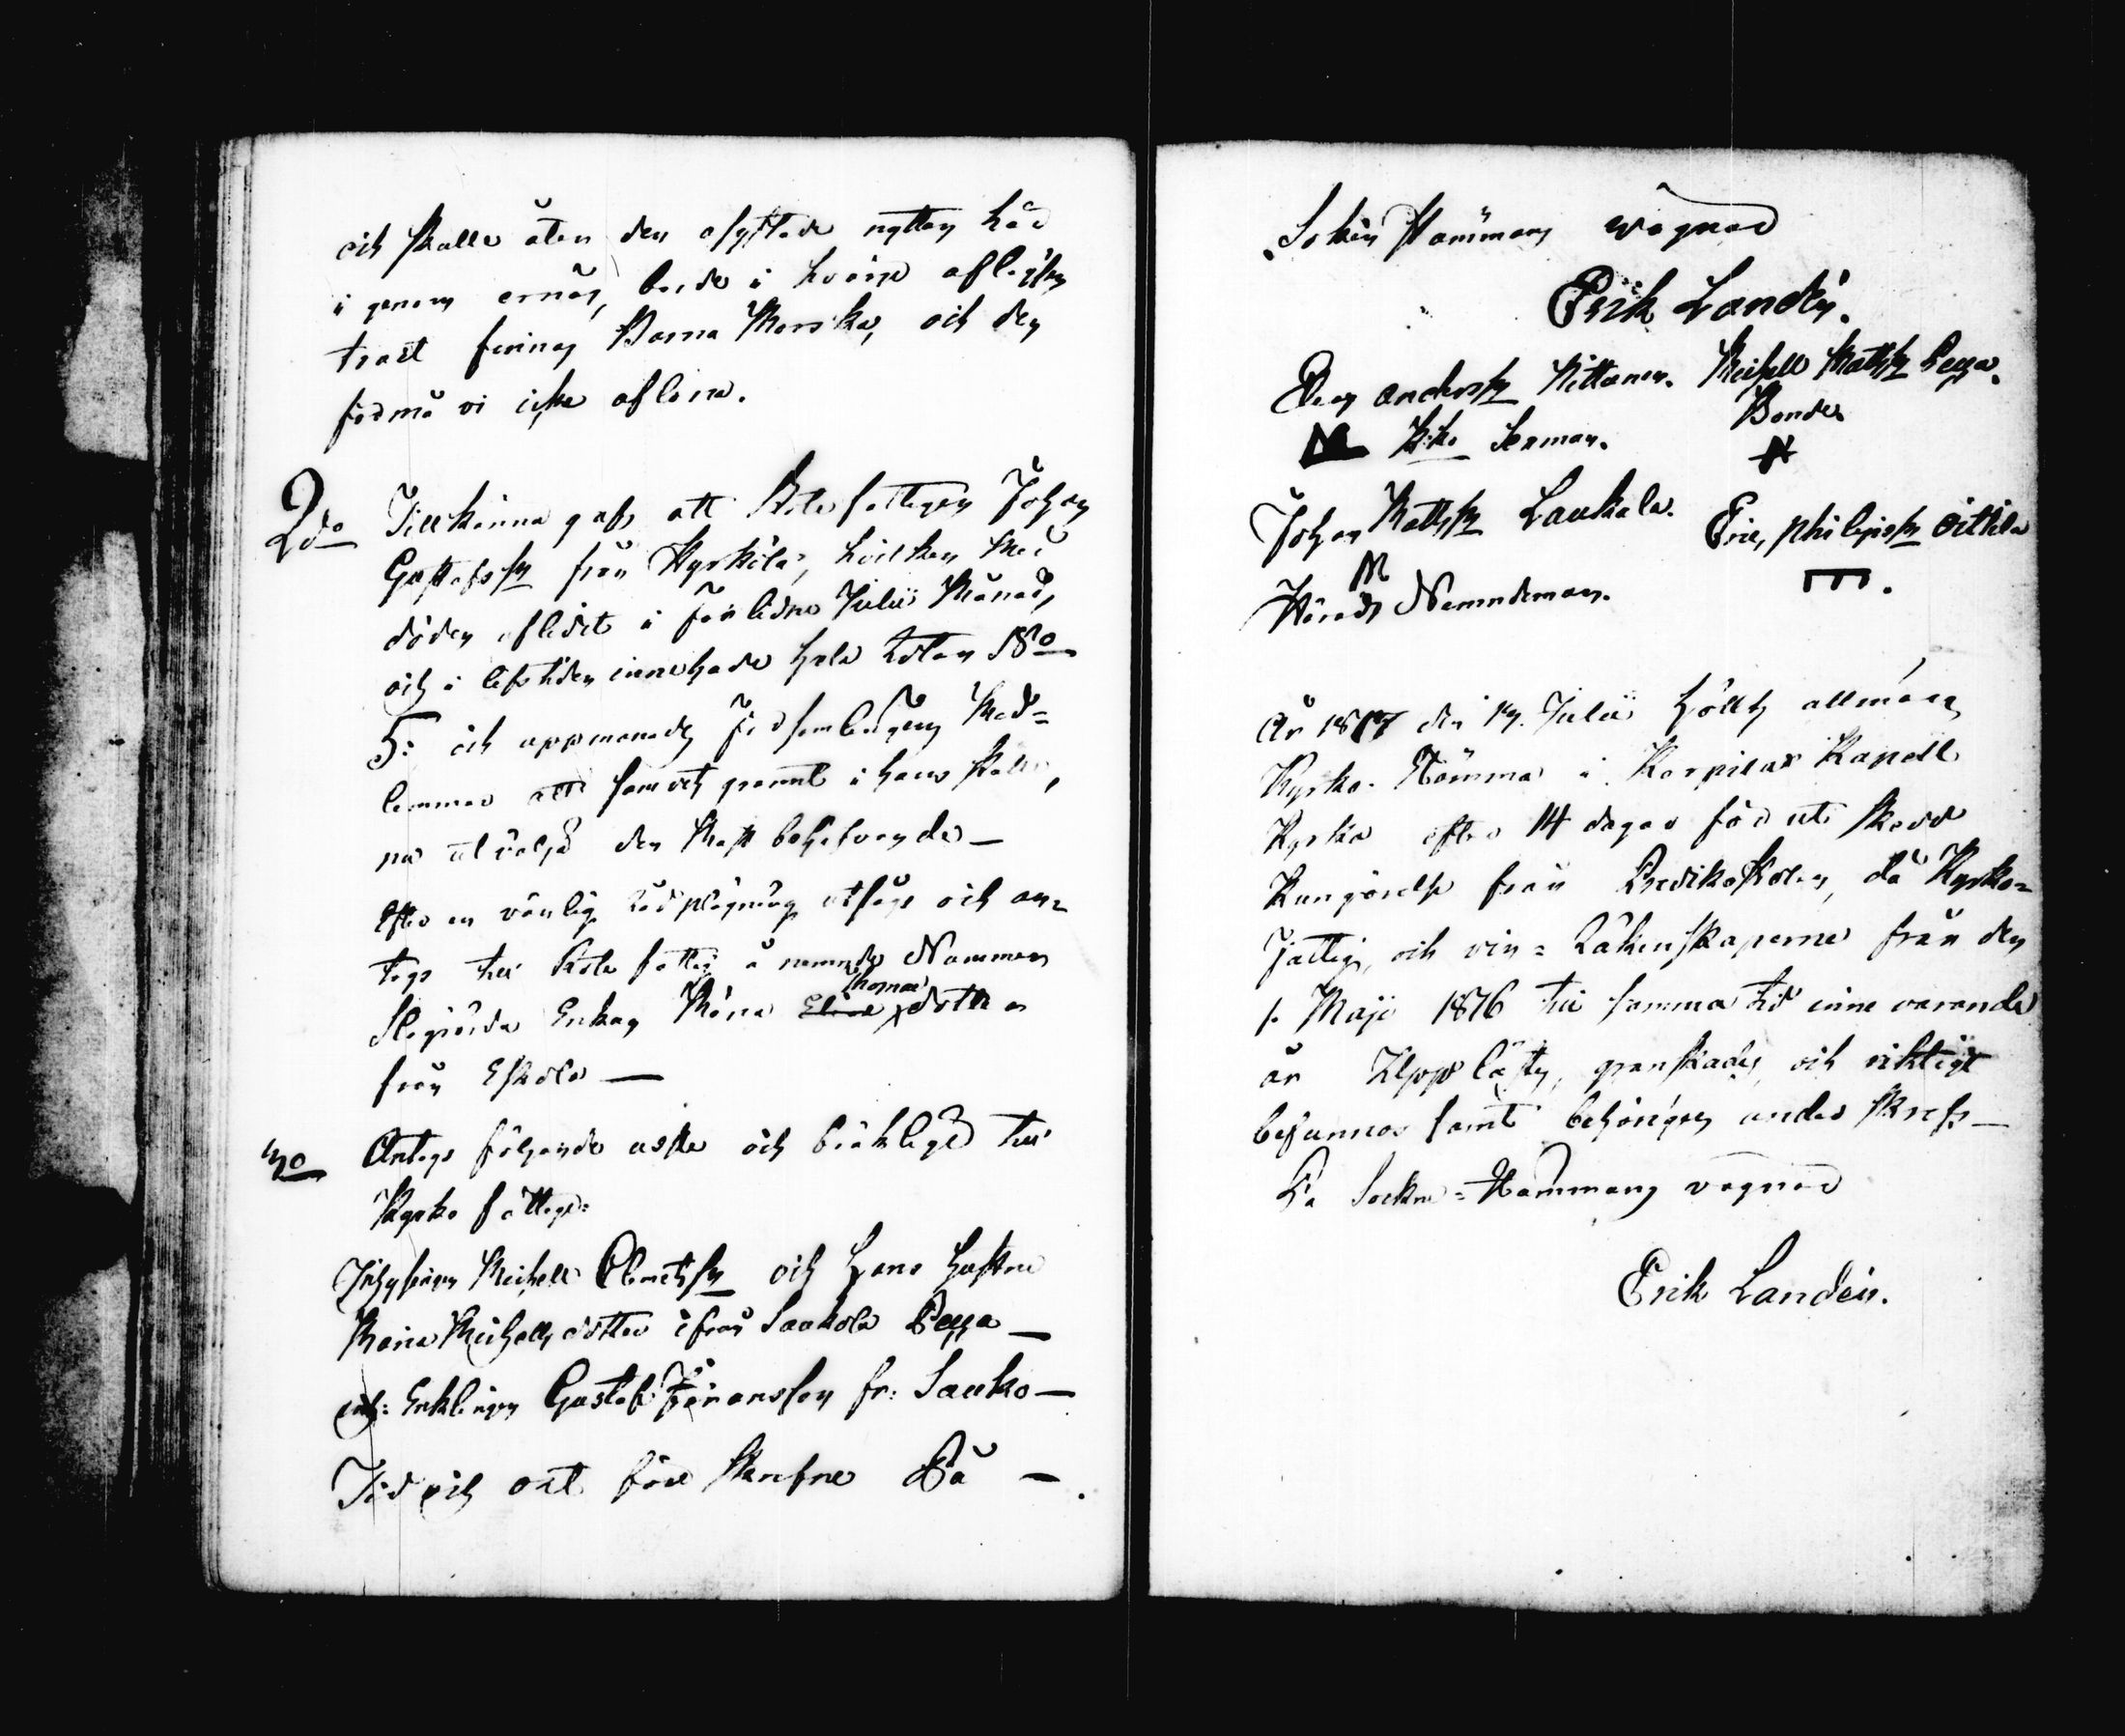 och skulle åter den åsyftade nyttan här
igenom ernås, borde i hvarje aflägsen
tract finnas Barna Morska, och den
förmå vi icke aflöna.
2do Tillkänna gafs att Rote fattigen Johan
Gustafsson från Kyrkölä, hvilken med
döden aflidit i förlidne Julii Månad,
och i lifstiden innehade hela Rotan No
5: och uppmanades församlingens Med=
lemmar att samvetsgrannt i hans ställe,
nu utvälja den Mäst behöfvande —
Efter en vänlig rådplägning utsågs och an=
togs till Rote fattig å nemnde Nummer
Enkan Maria Elias Thomas dotter
från Eskola —
3o Antogs följande usle och bräklige till
Kyrko fattige:
Inhysingen Michell Clemetsson och hans hustru
Maria Michells dotter ifrån Saukola Pezza —
inh: Enklingen Gustaf Göransson fr: Sauko —
Tid och ort förr skrefne På — .
Sokne Stämmans vägnar
Erik Landén.
Anderss Kittanen. Michell Mattss Pezza.
Kiko Sexman. Bonde.
Johan Mattss Laukala. Eric, Philipss Oittila
Härads Nämndeman.
År 1817 den 19. Julii hölltz allmän
Kyrko-Stämma i Karpilax Kapell
Kyrka efter 14 dagar förut skedd
Kungörelse från Predikostolen, då Kyrko=
fattig, och vin= Räkenskaperne från den
1. Maji 1816 till samma tid innevarande
år Upplästes, granskades, och riktige
befunnos samt behörigen underskrefs —
På Sockne=Stämmans vägnar
Erik Landén.